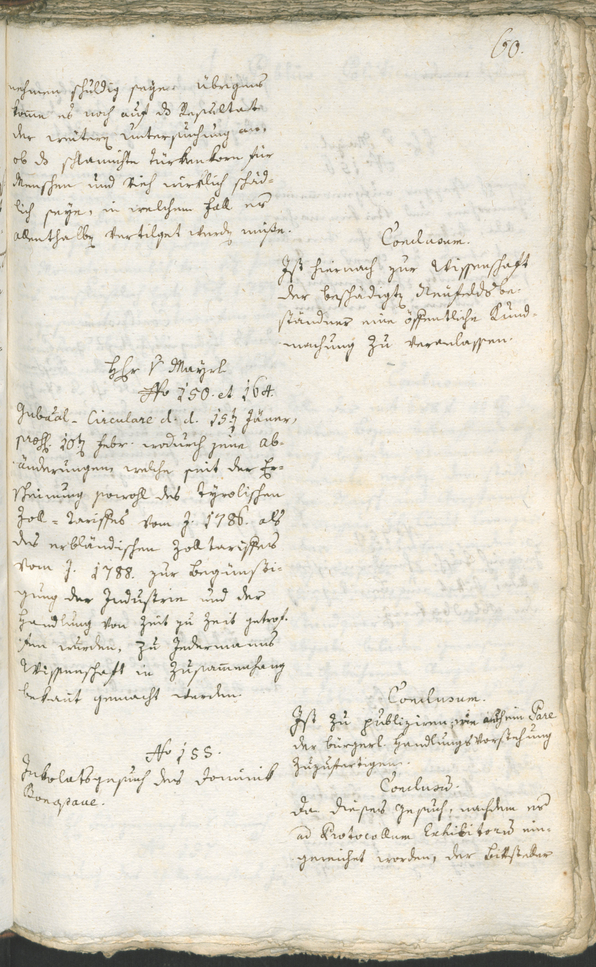 60.
nehmen schuldig seye. übrigens
komme es noch auf das Resultat
der weitern Untersuchung an,
ob das schlammichte Türkenkorn für
Menschen und Vieh wirklich schäd-
lich seye, in welchem Fall es
allenthalben vertilget werden müße.
Conclusum.
Ist hiernach zur Wissenschaft
der beschädigten Neufeldsbe-
ständner eine öffentliche Kund-
machung zu veranlassen.
Hr. v. Mayrl
No 150. et 164.
Gubernial-Circulare d. d. 15ten Jäner,
10ten Febr. wodurch jene Ab-
änderungen, welche seit der Er-
scheinung sowohl des Tyrolischen
Zoll-Tariffes vom J. 1786. als
des erbländischen Zolltariffes
vom J. 1788. zur Begünsti-
gung der Industrie und der
Handlung von Zeit zu Zeit getrof-
fen wurden, zu Jedermanns
Wissenschaft in Zusammenhang
bekannt gemacht werden.
Conclusum.
Ist zu publiziren, wie auch ein Pare
der bürgerl. Handlungsvorstehung
zuzufertigen.
No 155.
Inkolatsgesuch des Dominik
Bonapace.
Conclusum.
Da dieses Gesuch, nachdem es
ad Protocollum Exhibitorum ein-
gereichet worden, der Bittsteller